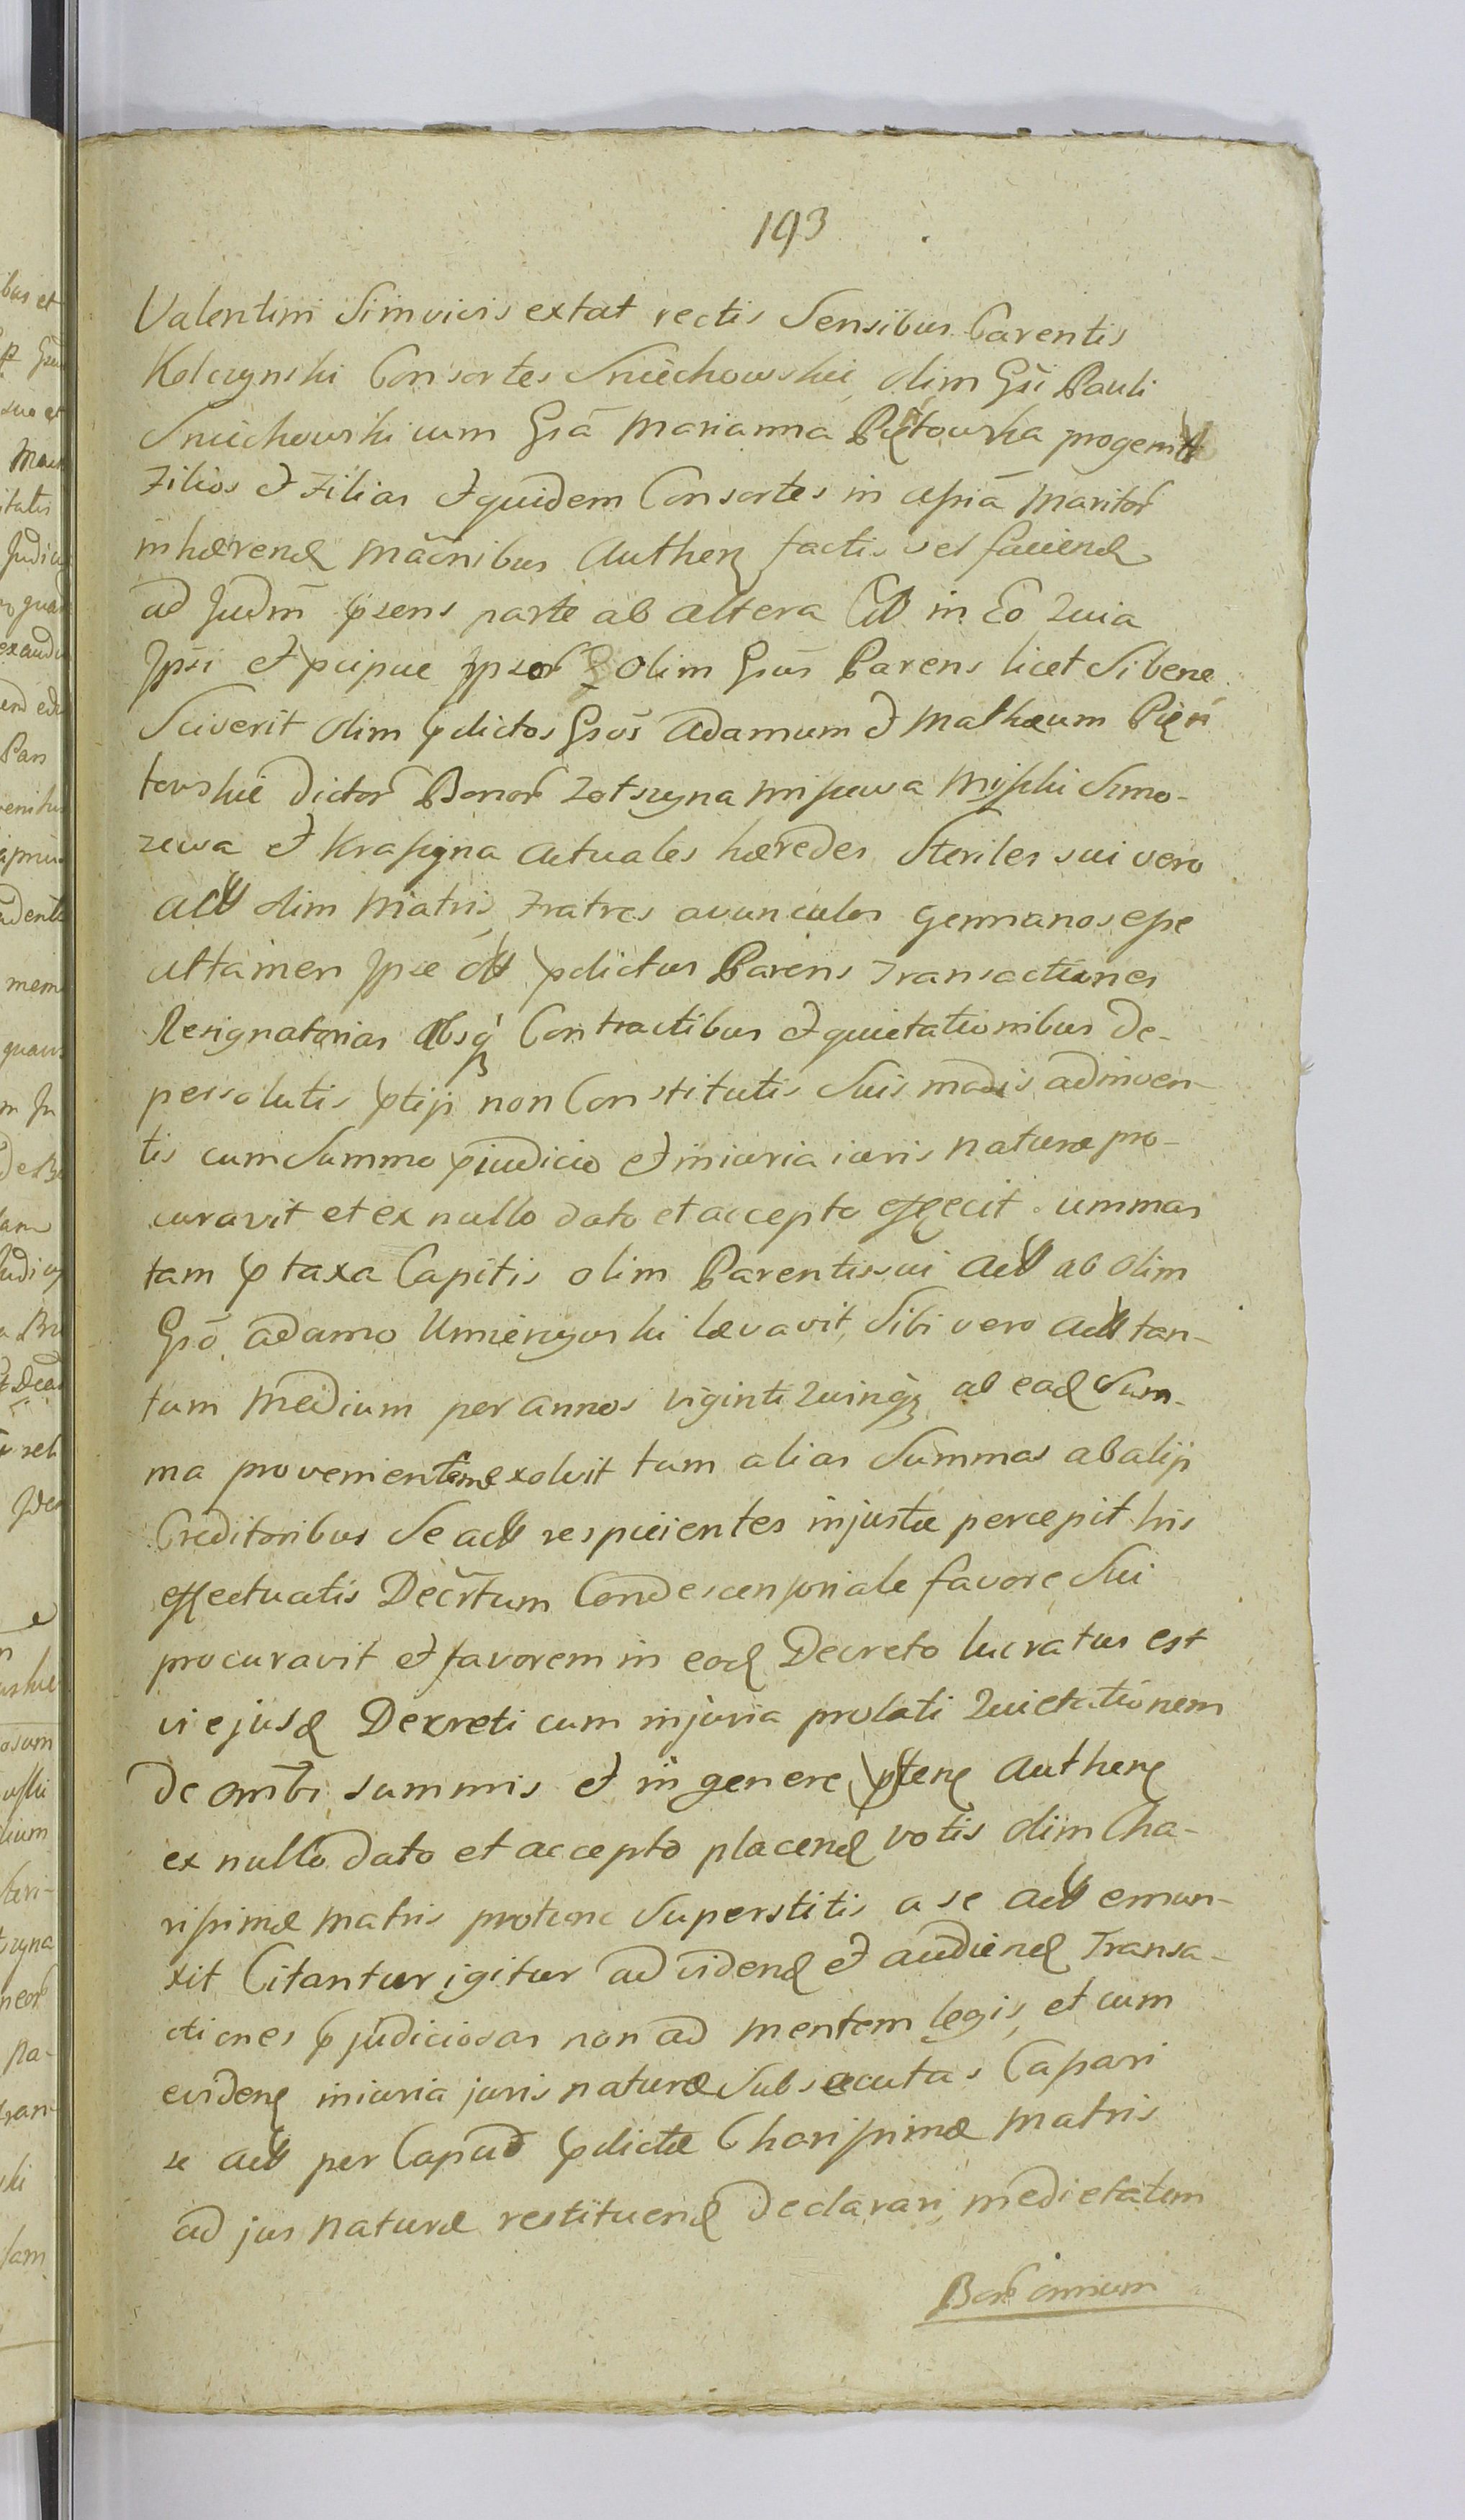 193
Valentini Simvicis extat rectis Sensibus Carentis
Kolczynski Consortes Sniechowskie olim Gsi Pauli
Sniechowski cum Gsa Marianna Piętowska progenit
Filios et Filias et quidem Consortes in assia Maritor
inhærend mãonibus Authen factis vel faciend
ad Judm psens parte ab altera Citt in Eo Quia
Ipsi et pcipue Ipsor olim Gsus Parens licet Si bene
Sciverit olim pdictos Gsos Adamum et Mathæum Pięń
towskie Dictor Bonor Zotszyna Missewa Misski Smo-
zewa et Krassyna actuales hæredes Steriles sui vero
actt olim Matris Fratres avunculos Germanos esse
attamen Ipse ott pdictus Parens Transactiones
Resignatorias absq Contractibus et quietationibus De-
persolutis ptiss non Constitutis Suis modis adinven-
tis cum Summo pjudicio et iniuria iuris naturæ pro-
curavit et ex nullo dato et accepto effecit ummas
tam p taxa Capitis olim Parentis sui actt ab olim
Gso Adamo Umienzyoski lævavit, Sibi vero actt tan-
tum Medium per annos viginti Quinq ab ead Sum-
ma provenientem exolvit tum alias Summas ab alijs
Creditoribus Se actt respicientes injuste percepit his
effectuatis Decrtum Condescensoriale favore Sui
procuravit et favorem in eod Decreto lucratus est
vi ejusd Decreti cum injuria prolati Quietationem
De ombi summis et in genere pten Authen
ex nullo Dato et accepto placend votis olim Cha-
rissimæ Matris protunc Superstitis a se actt emun-
xit Citantur igitur ad vidend et audiend Transa-
ctiones pjudiciosas non ad mentem legis, et cum
eviden iniuria juris naturæ Subsecutas Cassari
se actt per Caput pdictæ Charissimæ Matris
ad jus naturæ restituend Declarari, medietatem
Bor omnium